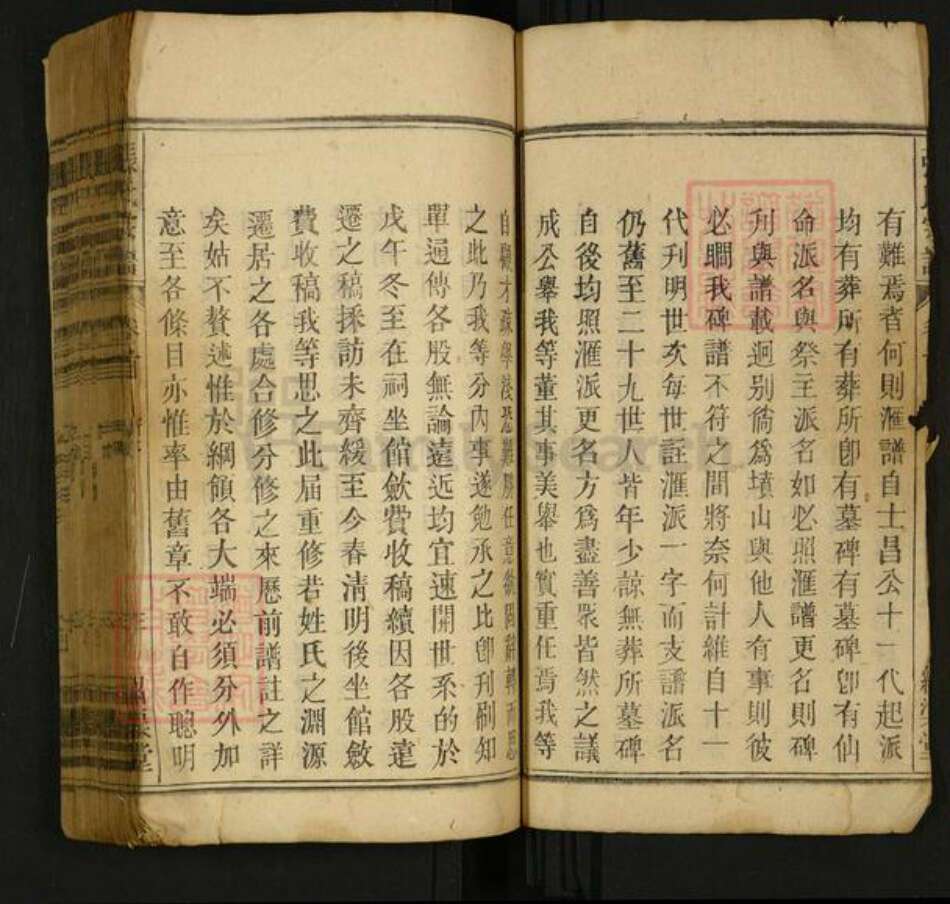 有難焉者何則滙譜自士昌公十一代起派
均有葬所有葬所卽有墓碑有墓碑卽有仙
命派名與祭主派名如必照滙譜更名則碑
刋與譜載迥别倘爲墳山與他人有事則彼
必瞯我碑譜不符之間將奈何計維自十一
代刋明世次每世註滙派一字而支譜派名
仍舊至二十九世人皆年少諒無葬所墓碑
自後均照滙派更名方爲盡善衆皆然之議
成公舉我等董其事美舉也實重任焉我等
自慚才疎學淺恐難勝任意欲固辭轉而思
之此乃我等分內事遂勉承之比卽刋刷知
單遍傳各股無論遠近均宜速開世系的於
戊午冬至在祠坐館歛費收稿續因各股遠
遷之稿採訪未齊緩至今春清明後坐館歛
費收稿我等思之此届重修若姓氏之淵源
遷居之各處合修分修之來歷前譜註之詳
矣姑不贅述惟於綱領各大端必須分外加
意至各條目亦惟率由舊章不敢自作聰明